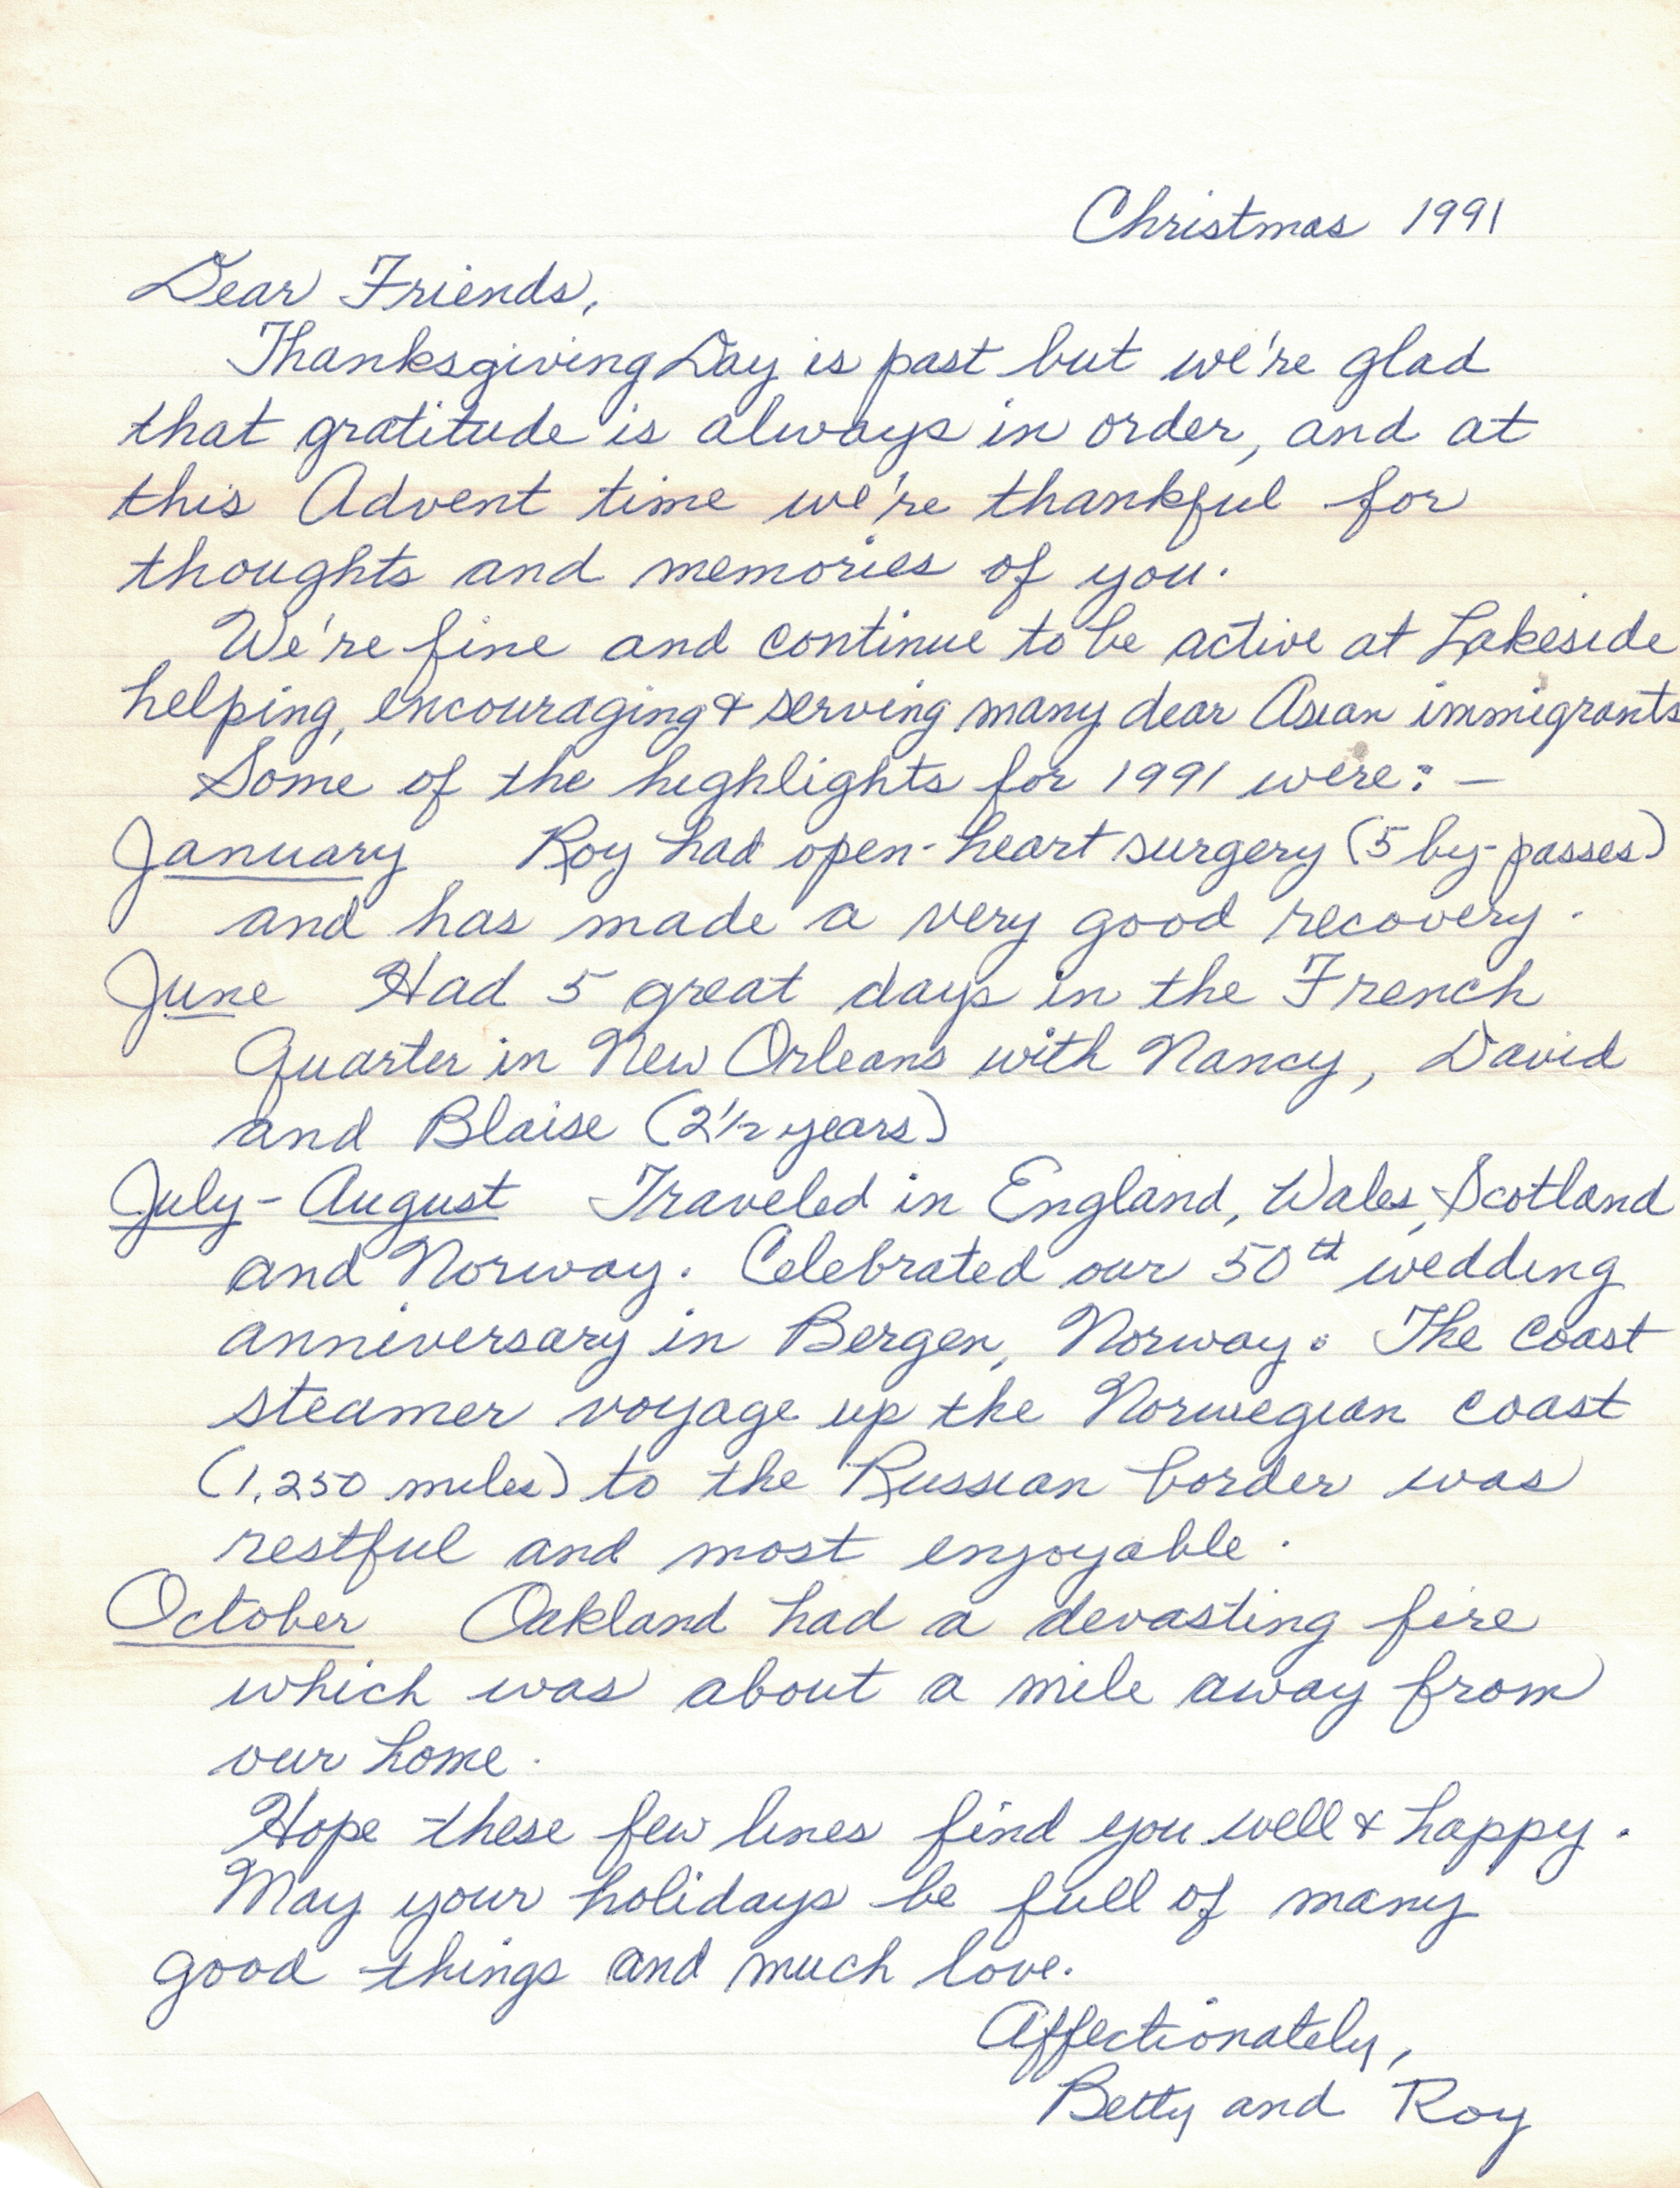 Christmas 1991
Dear Friends,
Thanksgiving Day is past but we're glad
that gratitude is always in order, and at
this Advent time we're thankful for
thoughts and memories of you.
We're fine and continue to be active at Lakeside
helping, encouraging & serving many dear Asian immigrants
Some of the highlights for 1991 were: –
January Roy had open-heart surgery (5 by-passes)
and has made a very good recovery.
June Had 5 great days in the French
Quarter in New Orleans with Nancy, David
and Blaise (2 1/2 years)
July - August Traveled in England, Wales, Scotland
and Norway. Celebrated our 50th wedding
anniversary in Bergen, Norway. The coast
steamer voyage up the Norwegian coast
(1,250 miles) to the Russian border was
restful and most enjoyable.
October Oakland had a devasting fire
which was about a mile away from
our home.
Hope these few lines find you well & happy.
May your holidays be full of many
good things and much love.
Affectionately,
Betty and Roy